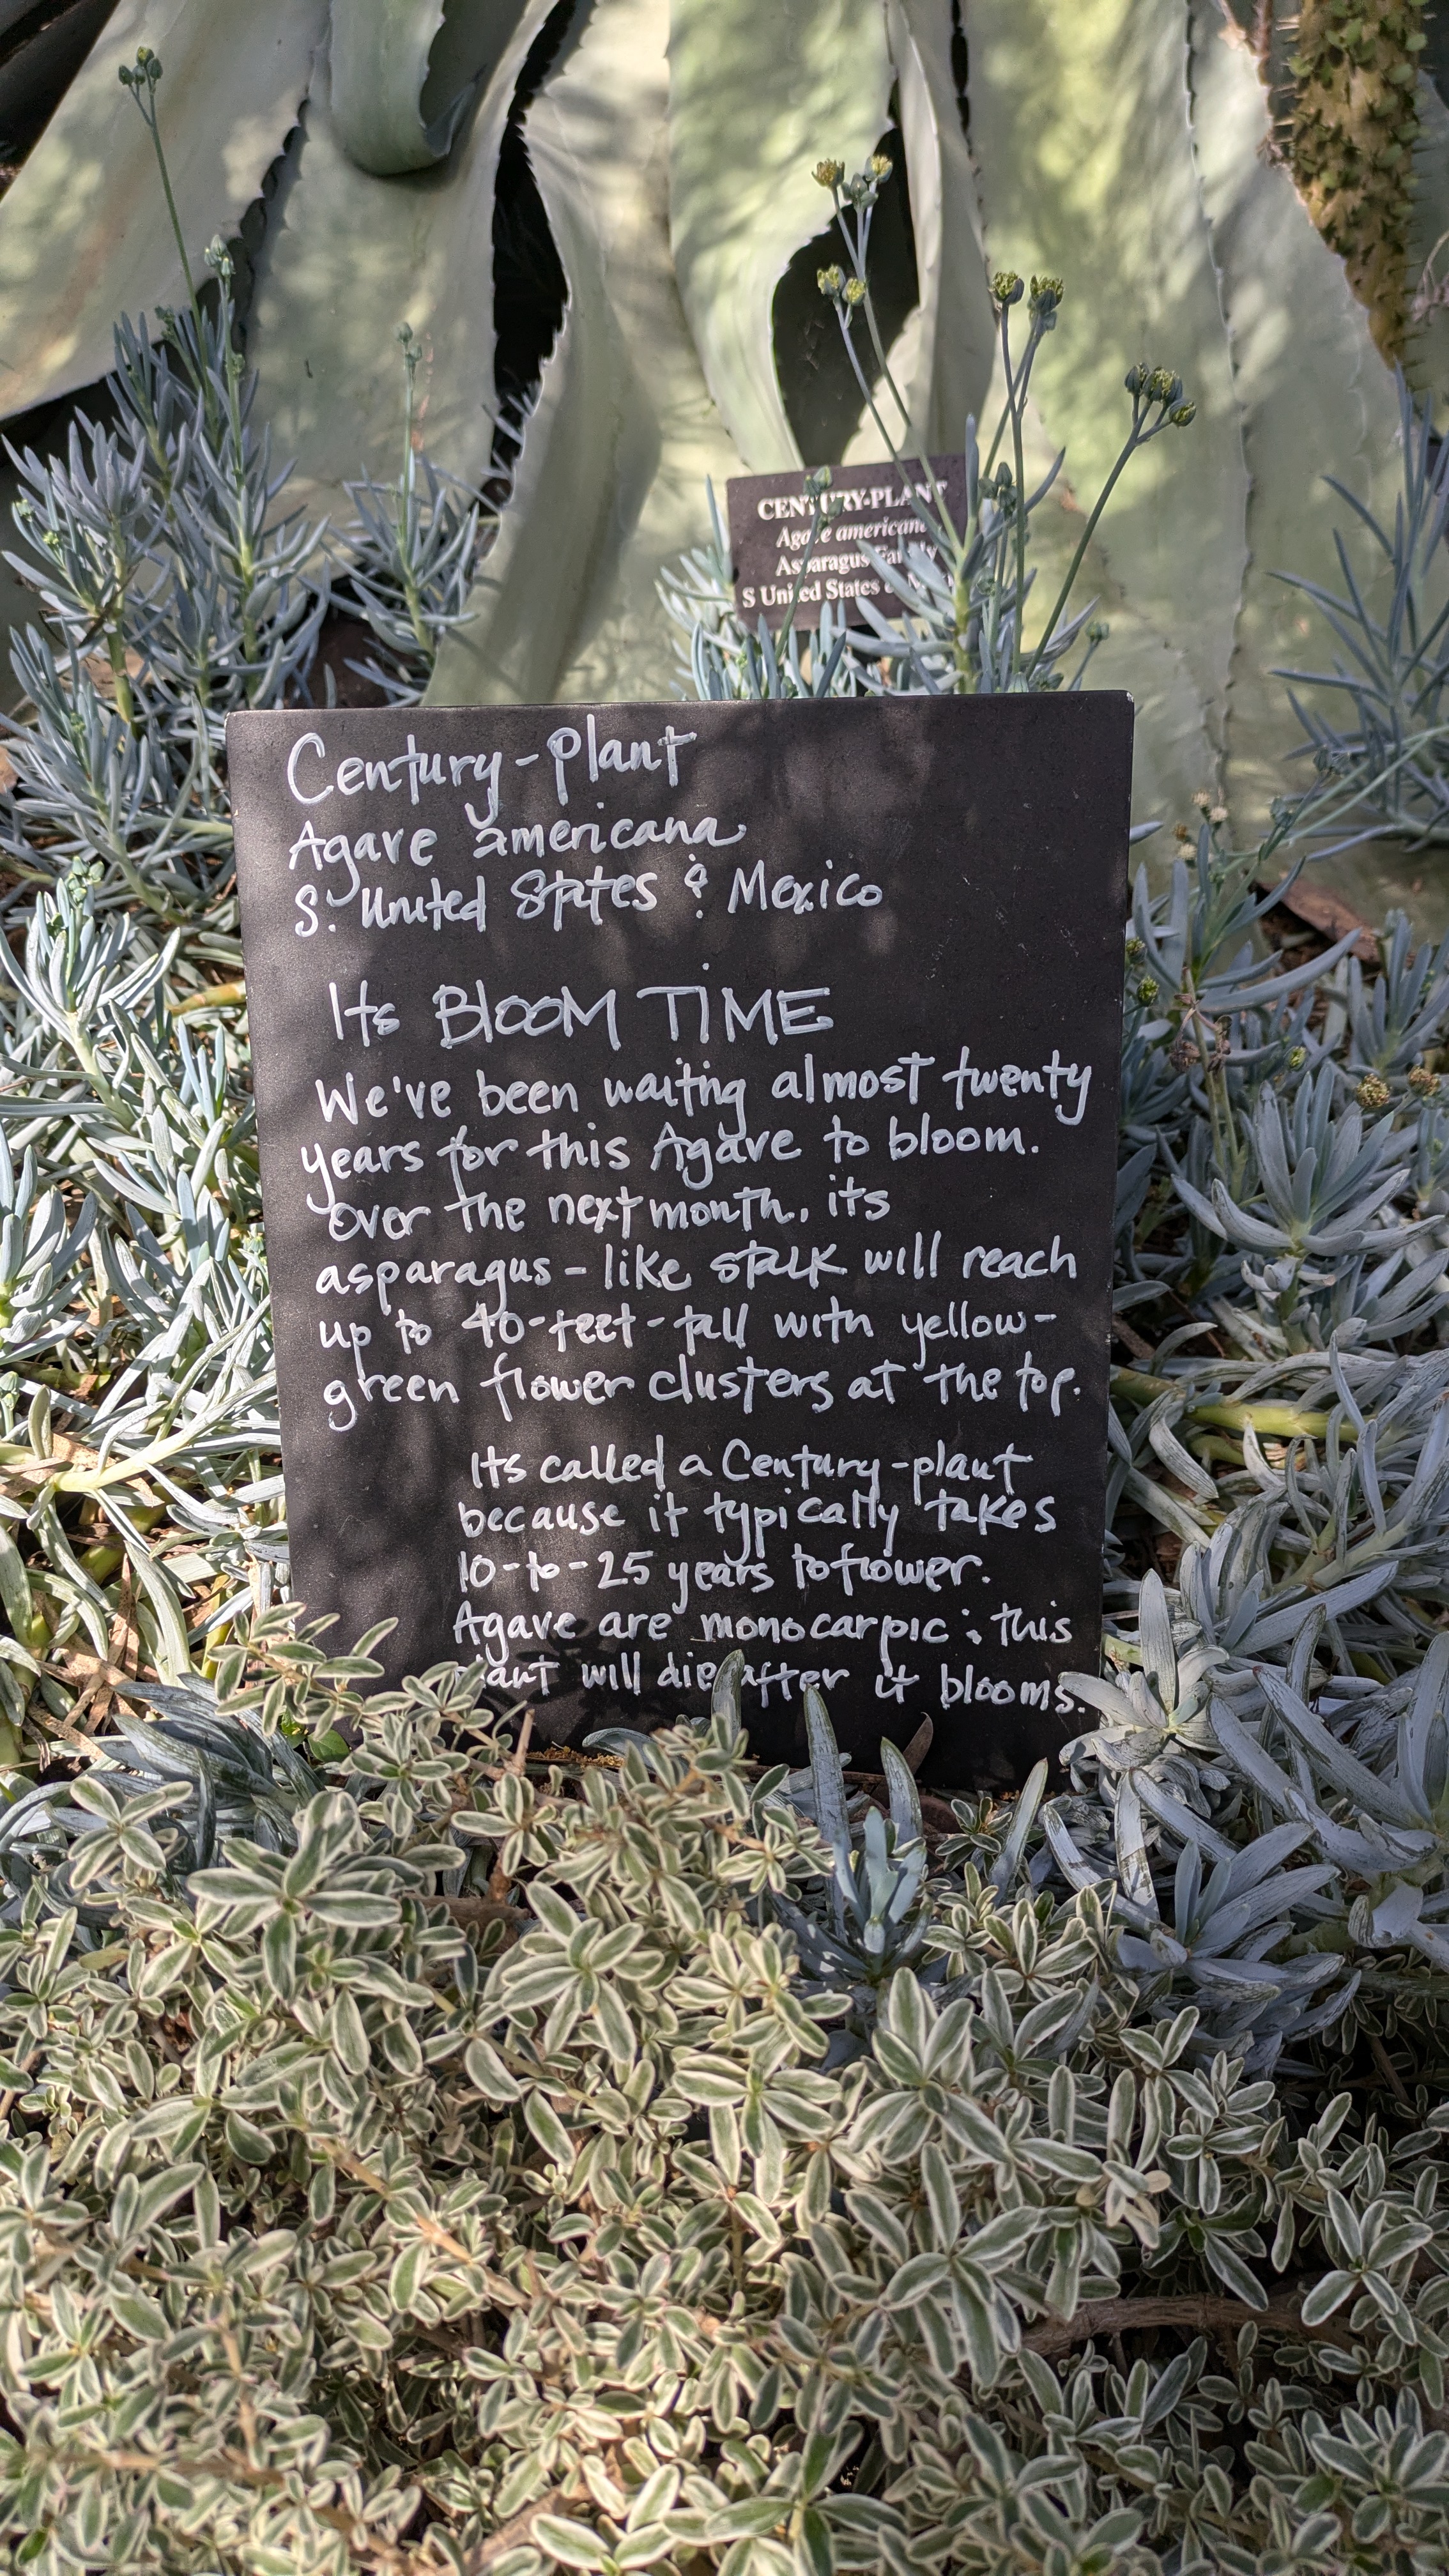 CENTURY-PLANT
Agave americana
Asparagus Family
S United States
Century-plant
Agave americana
S. United States & Mexico
Its BLOOM TIME
We've been waiting almost twenty
years for this Agave to bloom.
Over the next month, its
asparagus-like stalk will reach
up to 40-feet-tall with yellow-
green flower clusters at the top.
Its called a Century-plant
because it typically takes
10-to-25 years to flower.
Agave are monocarpic; this
plant will die after it blooms.